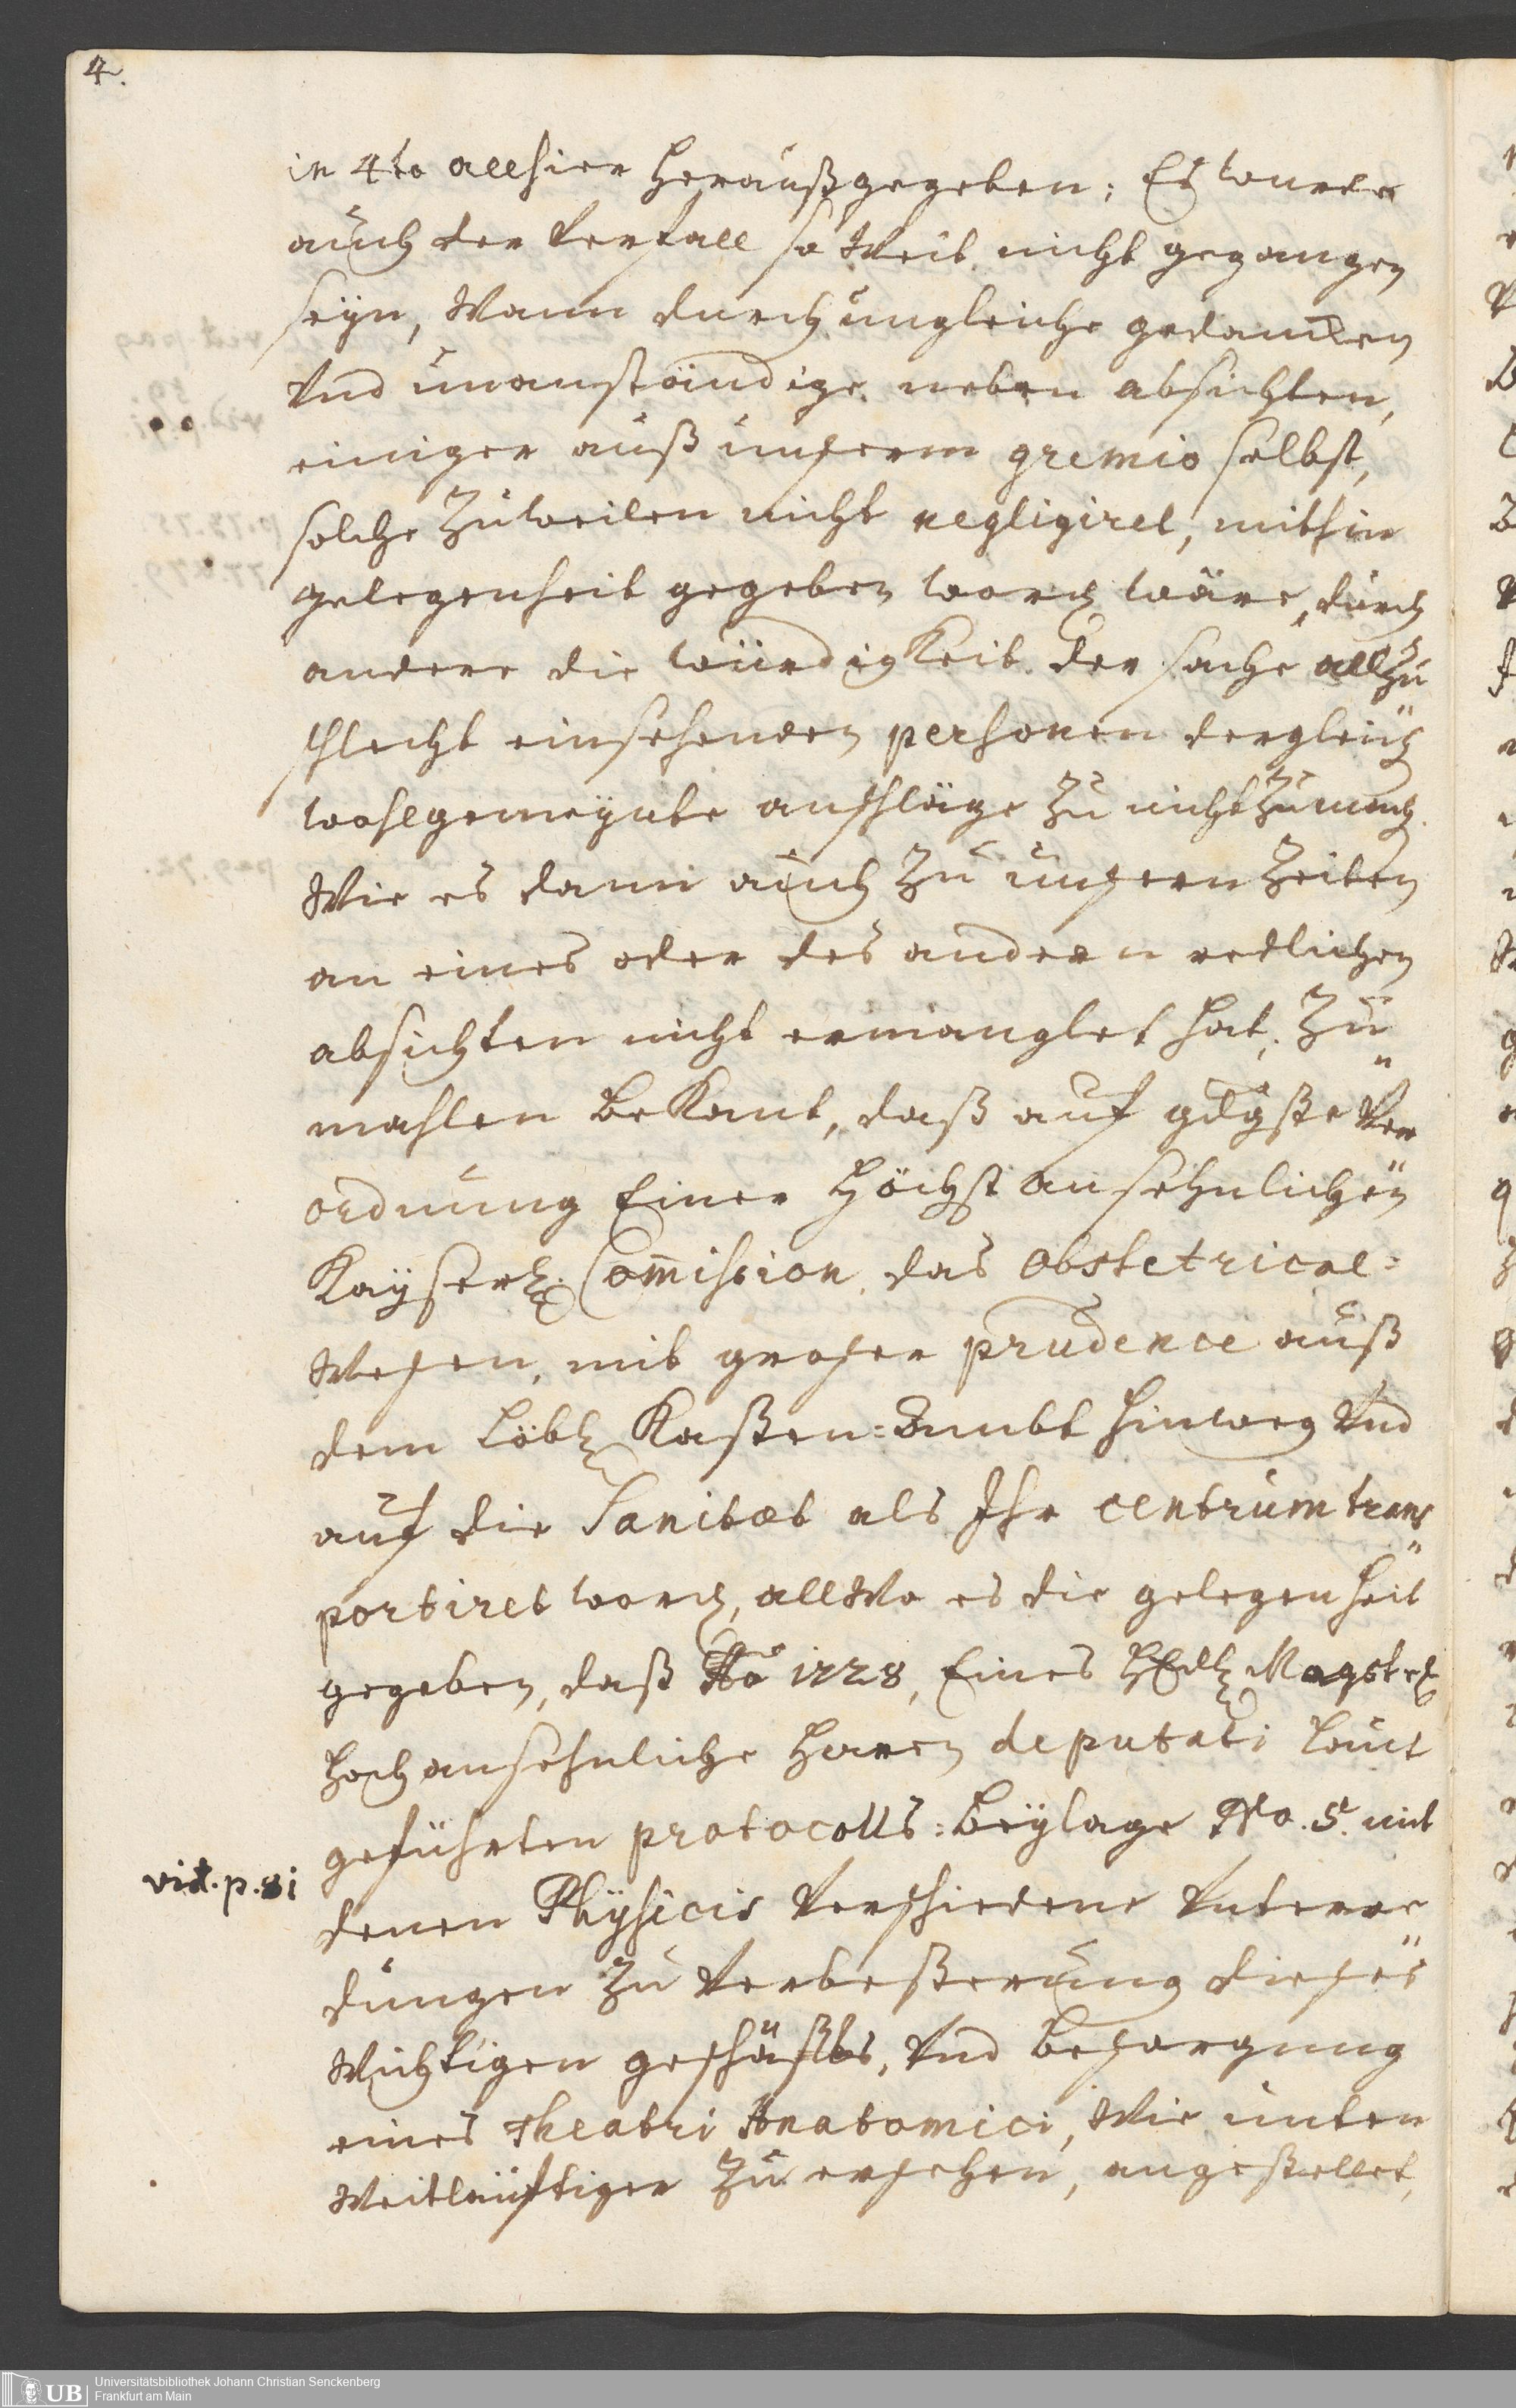 4.
in 4to allhier heraußgegeben; Es wurde
auch der Verfall so Weit nicht gegangen
seÿn, Wann durch ungleiche gedancken
Vnd unanständige neben absichten,
einiger auß unserm gremio selbst,
solche Zuweilen nicht negligiret, mithin
gelegenheit gegeben word wäre, durch
andere die würdigkeit der sache allzu
schlecht einsehenden personen dergleich
wohlgemeÿnte anschläge Zu nicht Zu mach.
Wie es dann auch Zu unsern Zeiten
an eines oder des andern redlichen
absichten nicht ermanglet hat, Zu"
mahlen beKant, daß auf gdgste Ver"
ordnung Einer Höchst ansehnlichen
Kaÿserl. Com̄ission das Obstetrical=
Wesen, mit groser prudence auß
dem Löbl Kasten=Ambt hinweg Vnd
auf die Sanitæt als Ihr centrum trans"
portiret word, allWo es die gelegenheit
gegeben, daß Ao 1728, Eines HEdl Magstr
Hoch ansehnliche Herren deputati Laut
geführten protocolls=Beÿlage No. 5. mit
vid. p. 81
denen Phÿsicis Verschiedene Vnterre"
dungen Zu Verbeßerung dieses
Wichtigen geschäffts, Vnd Besorgung
eines Theatri Anatomici, Wie unten
Weitläuftiger Zu ersehen, angestellet,
UB Universitätsbibliothek Johann Christian Senckenberg
Frankfurt am Main